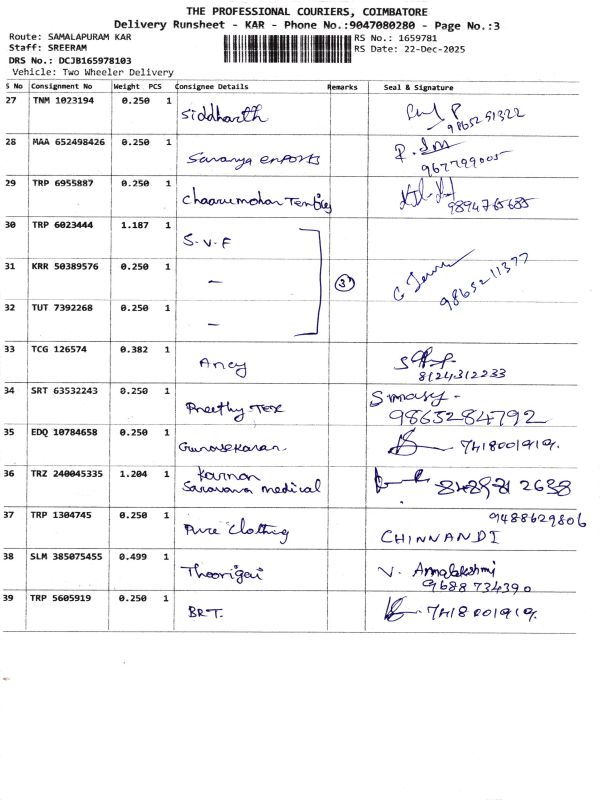 THE PROFESSIONAL COURIERS, COIMBATORE
Delivery Runsheet - KAR - Phone No.:9047080280 - Page No.:3
Route: SAMALAPURAM KAR
RS No.: 1659781
Staff: SREERAM
RS Date: 22-Dec-2025
DRS No.: DCJB165978103
Vehicle: Two Wheeler Delivery
S No Consignment No Weight PCS Consignee Details Remarks Seal & Signature
27 TNM 1023194 0.250 1 Siddharth
9865251322
28 MAA 652498426 0.250 1 Saranya exports
967799005
29 TRP 6955887 0.250 1 Chaarumohan
9894765685
30 TRP 6023444 1.187 1 S.V.F
31 KRR 50389576 0.250 1 - 3
9865211377
32 TUT 7392268 0.250 1 -
33 TCG 126574 0.382 1 Ancy
8124312233
34 SRT 63532243 0.250 1 Preethy Tex
9865284792
35 EDQ 10784658 0.250 1 Gunasekaran 7418001919.
36 TRZ 240045335 1.204 1 Kannan
Saravana medical
37 TRP 1304745 0.250 1 Pure Clothing 9488629806
CHINNANDI
38 SLM 385075455 0.499 1 Thoorigai V. Annalakshmi
9688734390
39 TRP 5605919 0.250 1 BRT. 7418001919.